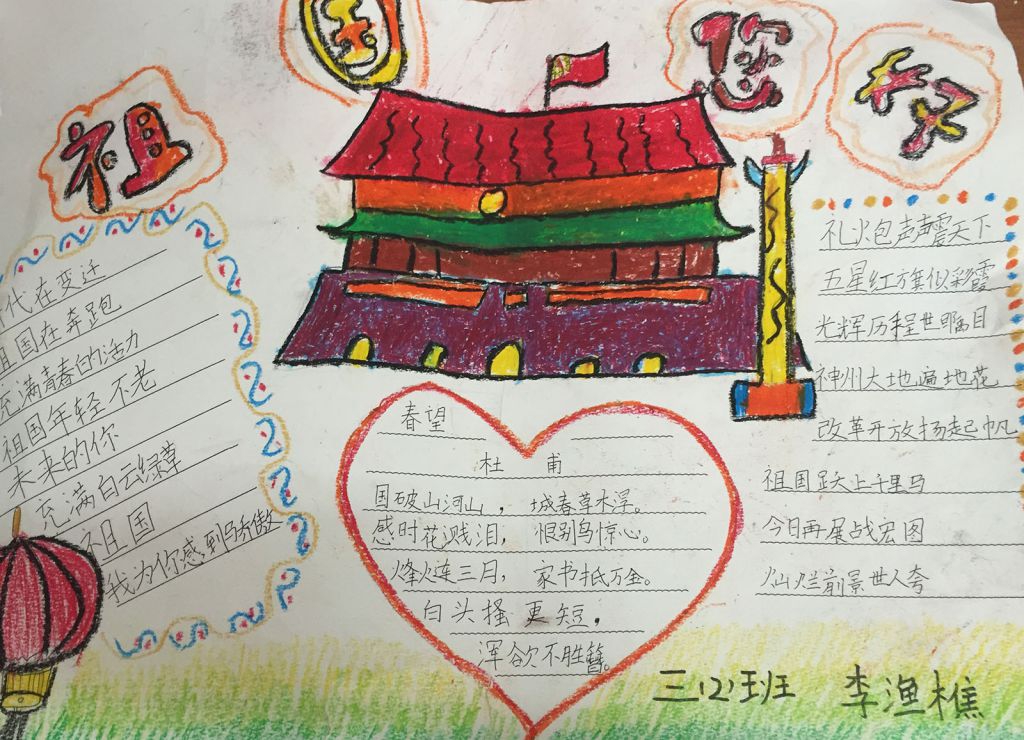 祖国您好
代在变迁
祖国在奔跑
充满青春的活力
祖国年轻不老
未来的你
充满白云绿草
祖国
我为你感到骄傲
春望
杜甫
国破山河山，城春草木浮。
感时花溅泪，恨别鸟惊心。
烽火连三月，家书抵万金。
白头搔更短，
浑欲不胜簪。
礼火包声声震天下
五星红旗似彩霞
光辉历程世瞩目
神州大地遍地花
改革开放扬起帆
祖国跃上千里马
今日再展战宏图
灿烂前景世人夸
三(2)班 李渔樵